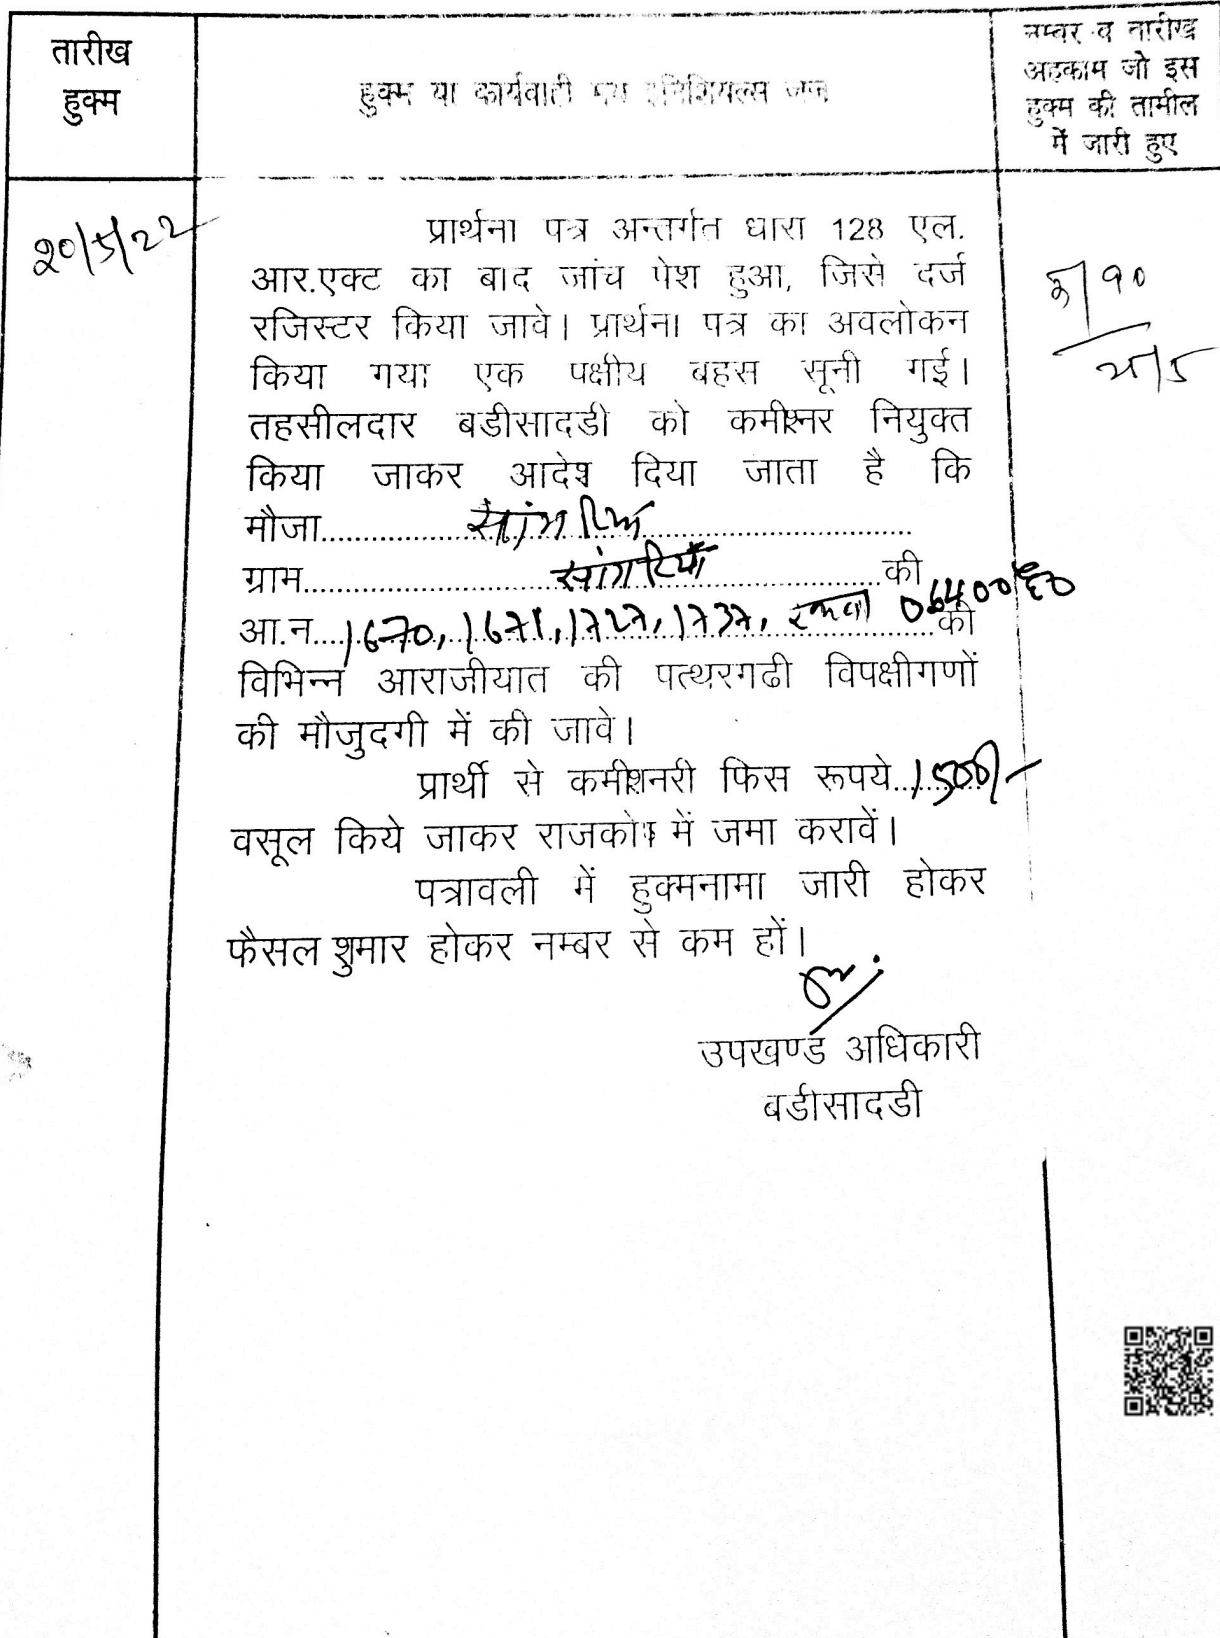 तारीख
हुक्म
हुक्म या कार्यवाही मय इनिशियल्स जज
नम्बर व तारीख
अहकाम जो इस
हुक्म की तामील
में जारी हुए
20/5/22
प्रार्थना पत्र अन्तर्गत धारा 128 एल.
आर.एक्ट का बाद जांच पेश हुआ, जिसे दर्ज
रजिस्टर किया जावे। प्रार्थना पत्र का अवलोकन
किया गया एक पक्षीय बहस सूनी गई।
तहसीलदार बडीसादडी को कमीश्नर नियुक्त
किया जाकर आदेश दिया जाता है कि
मौजा.......................................................
ग्राम...............सांगरिया...............की
आ.न...1670, 1671, 1727, 1737, रकबा............को
विभिन्न आराजीयात की पत्थरगढी विपक्षीगणों
की मौजुदगी में की जावे।
प्रार्थी से कमीशनरी फिस रूपये..1500/-
वसूल किये जाकर राजकोष में जमा करावें।
पत्रावली में हुक्मनामा जारी होकर
फैसल शुमार होकर नम्बर से कम हों।
उपखण्ड अधिकारी
बडीसादडी